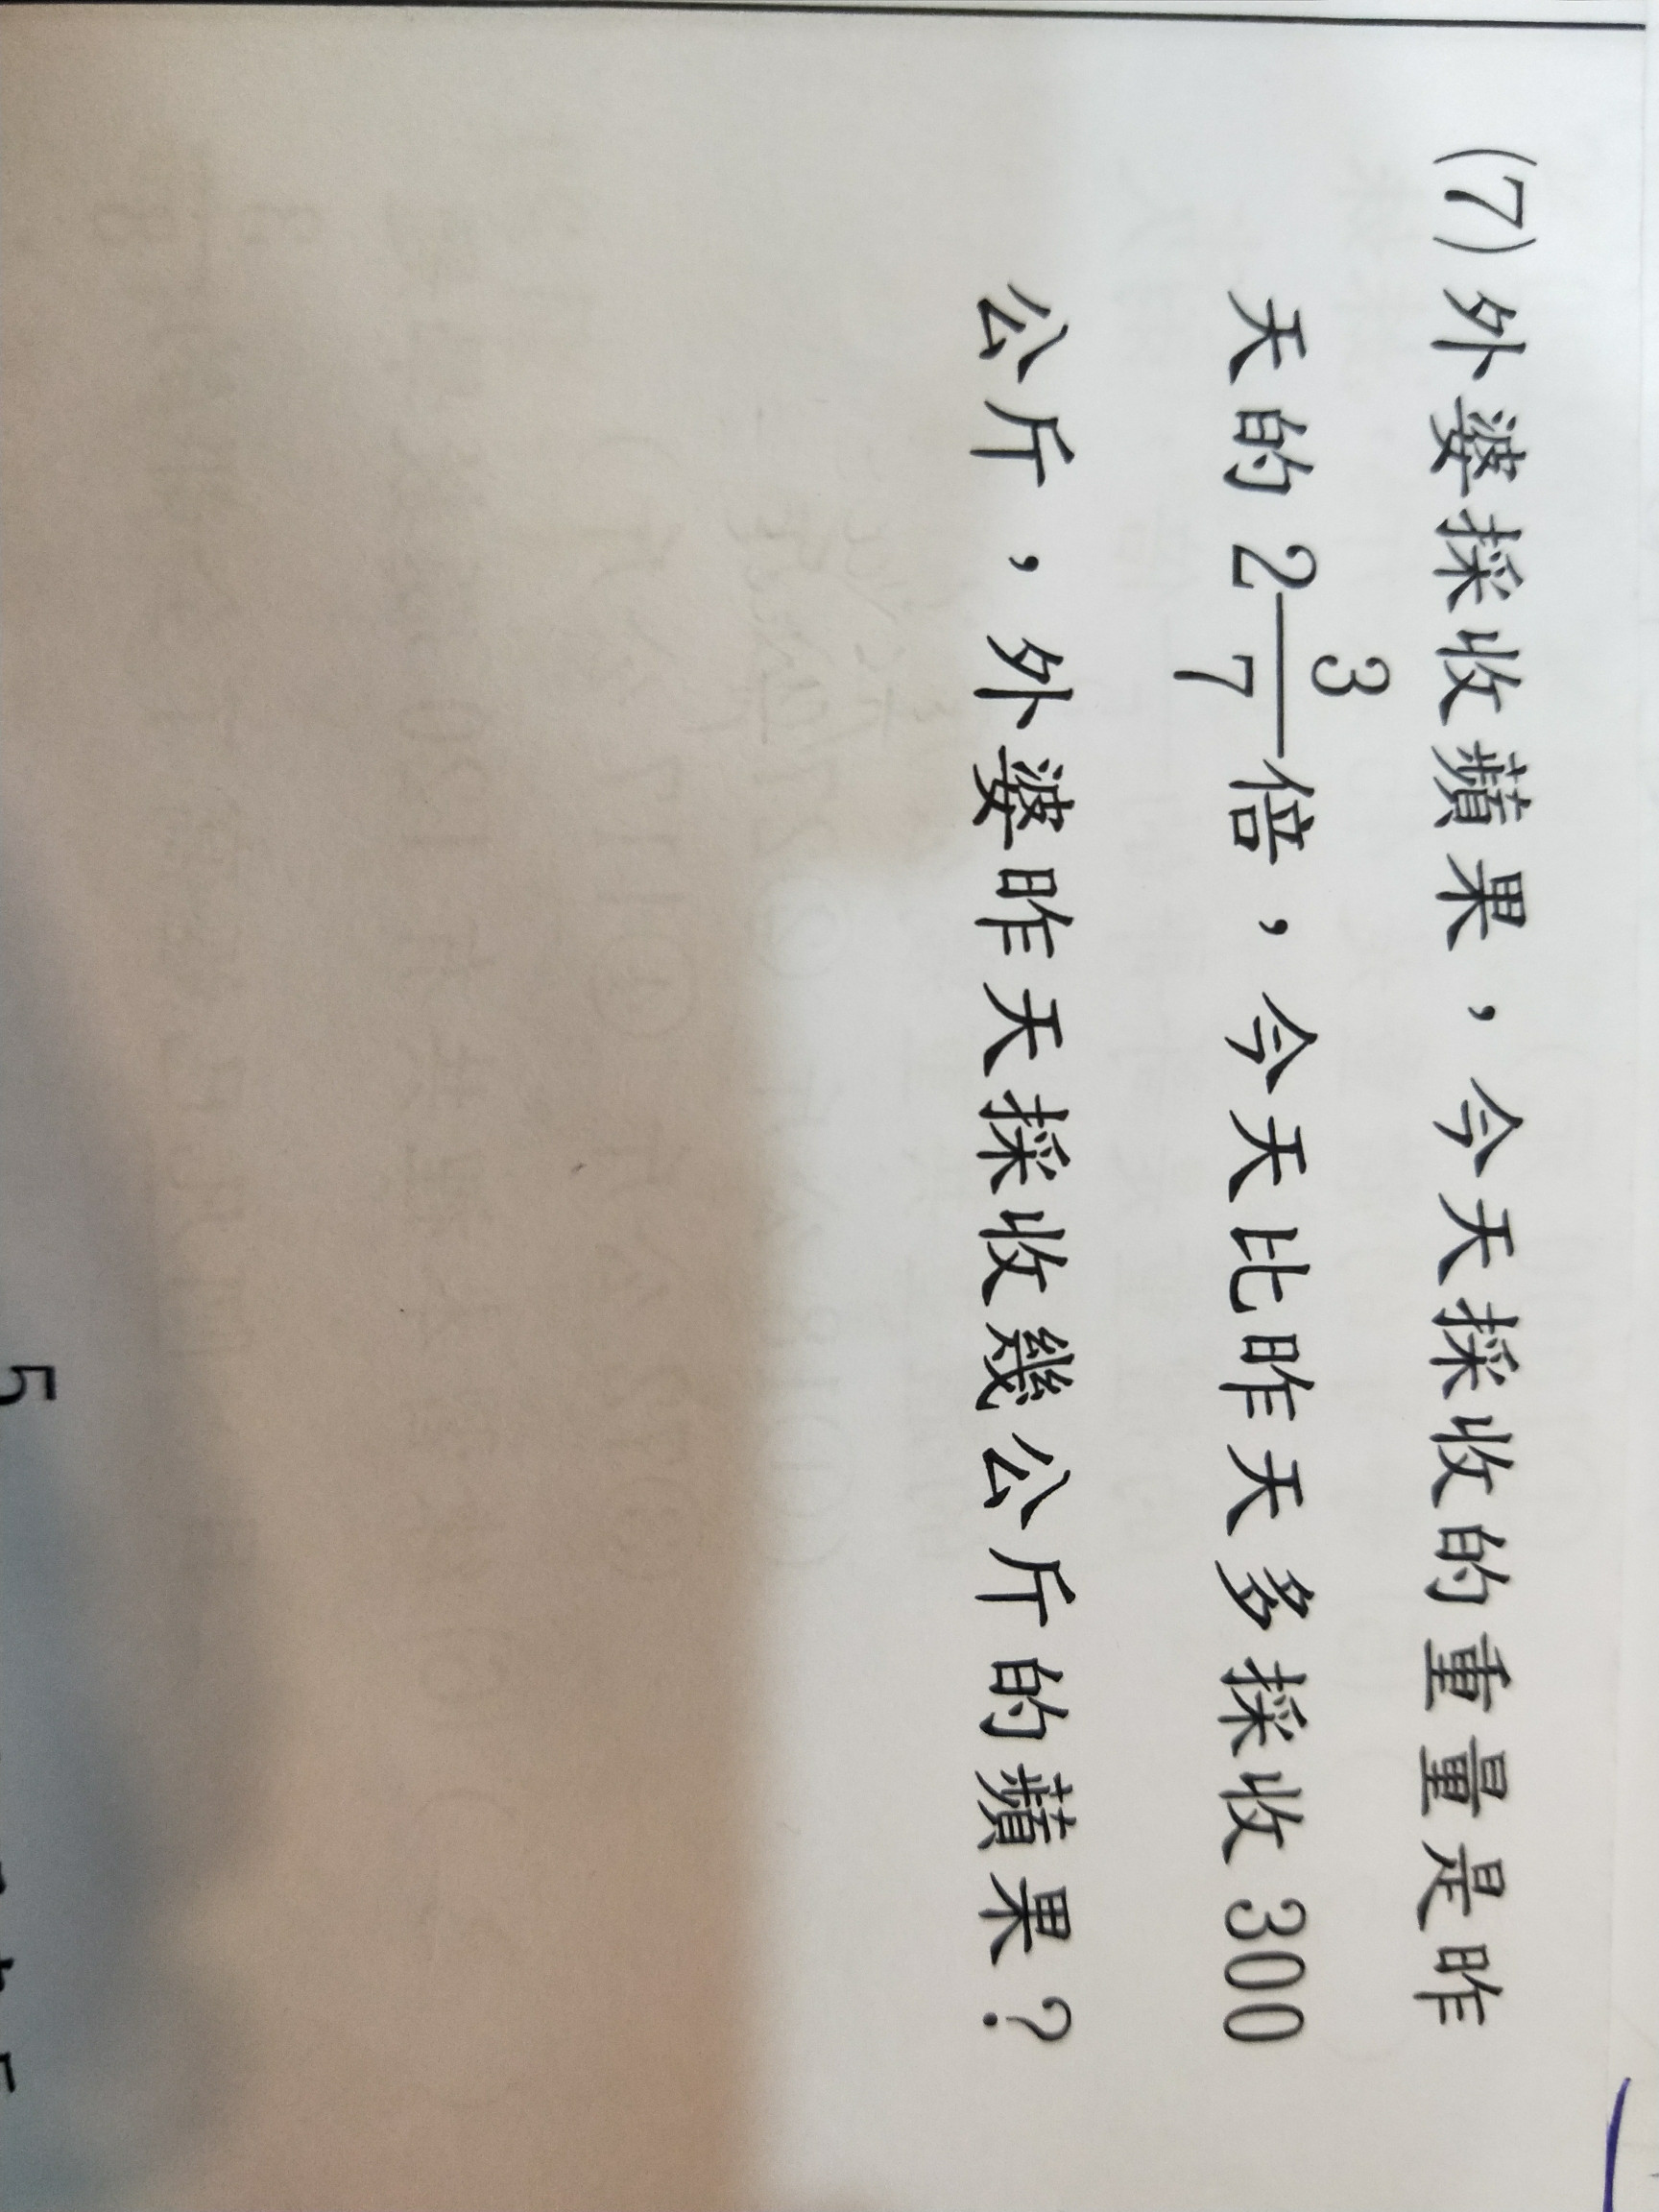 (7) 外婆採收蘋果，今天採收的重量是昨
天的 2 3/7 倍，今天比昨天多採收 300
公斤，外婆昨天採收幾公斤的蘋果？
5